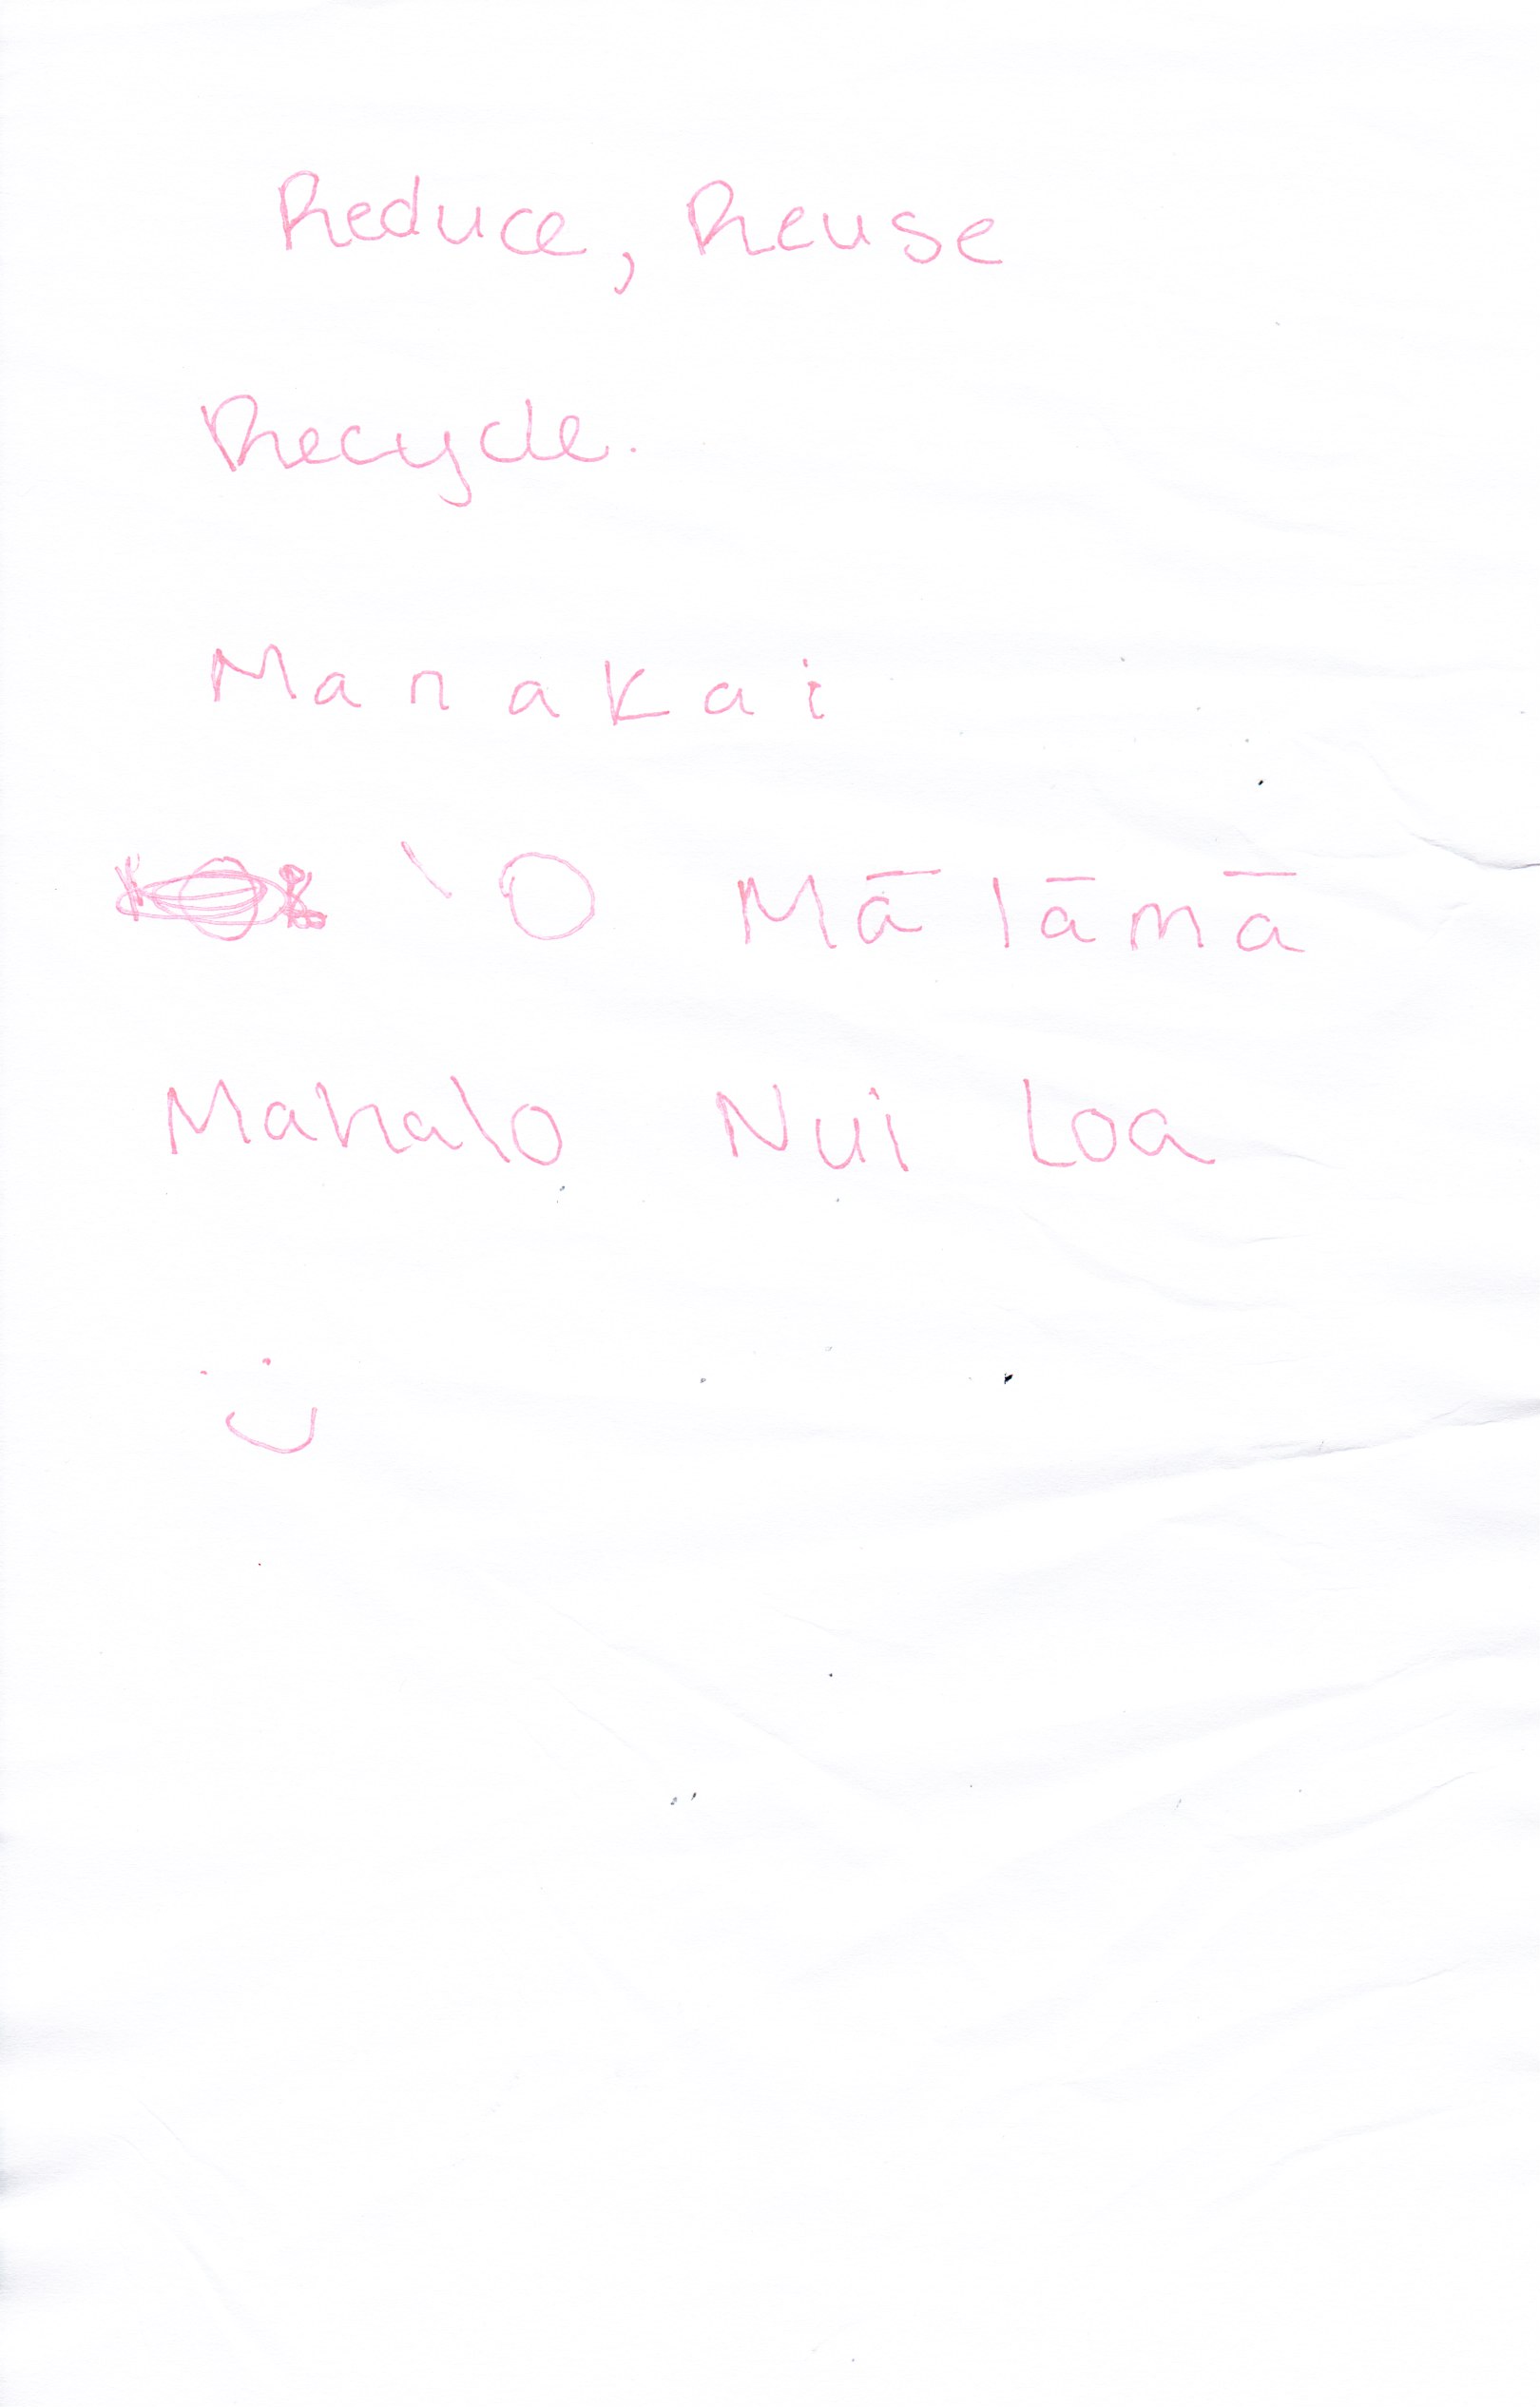 Reduce, Reuse
Recycle.
Manakai
`O Mālāmā
Mahalo Nui Loa